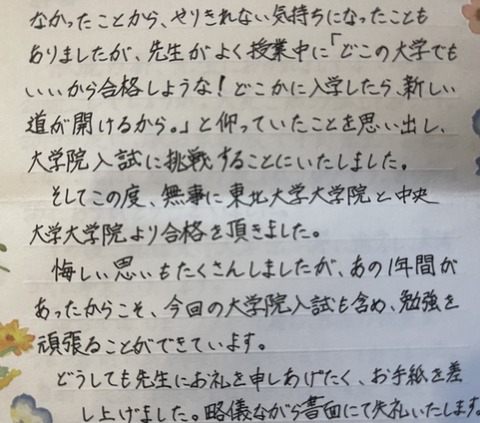 なかったことから、やりきれない気持ちになったことも
ありましたが、先生がよく授業中に「どこの大学でも
いいから合格しような！どこかに入学したら、新しい
道が開けるから。」と仰っていたことを思い出し、
大学院入試に挑戦することにいたしました。
そしてこの度、無事に東北大学大学院と中央
大学大学院より合格を頂きました。
悔しい思いもたくさんしましたが、あの1年間が
あったからこそ、今回の大学院入試も含め、勉強を
頑張ることができています。
どうしても先生にお礼を申しあげたく、お手紙を差
し上げました。略儀ながら書面にて失礼いたします